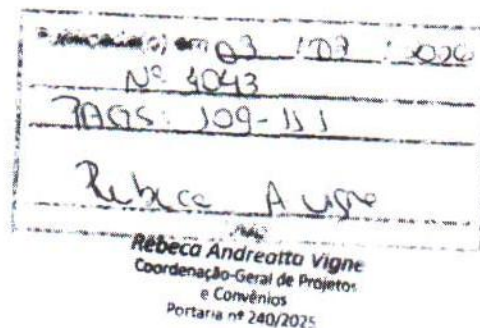 Publicado(a) em 03 / 03 / 2026
Nº 4043
PAGS: 109-111
Rebeca A Vigne
Rebeca Andreatta Vigne
Coordenação-Geral de Projetos
e Convênios
Portaria nº 240/2025